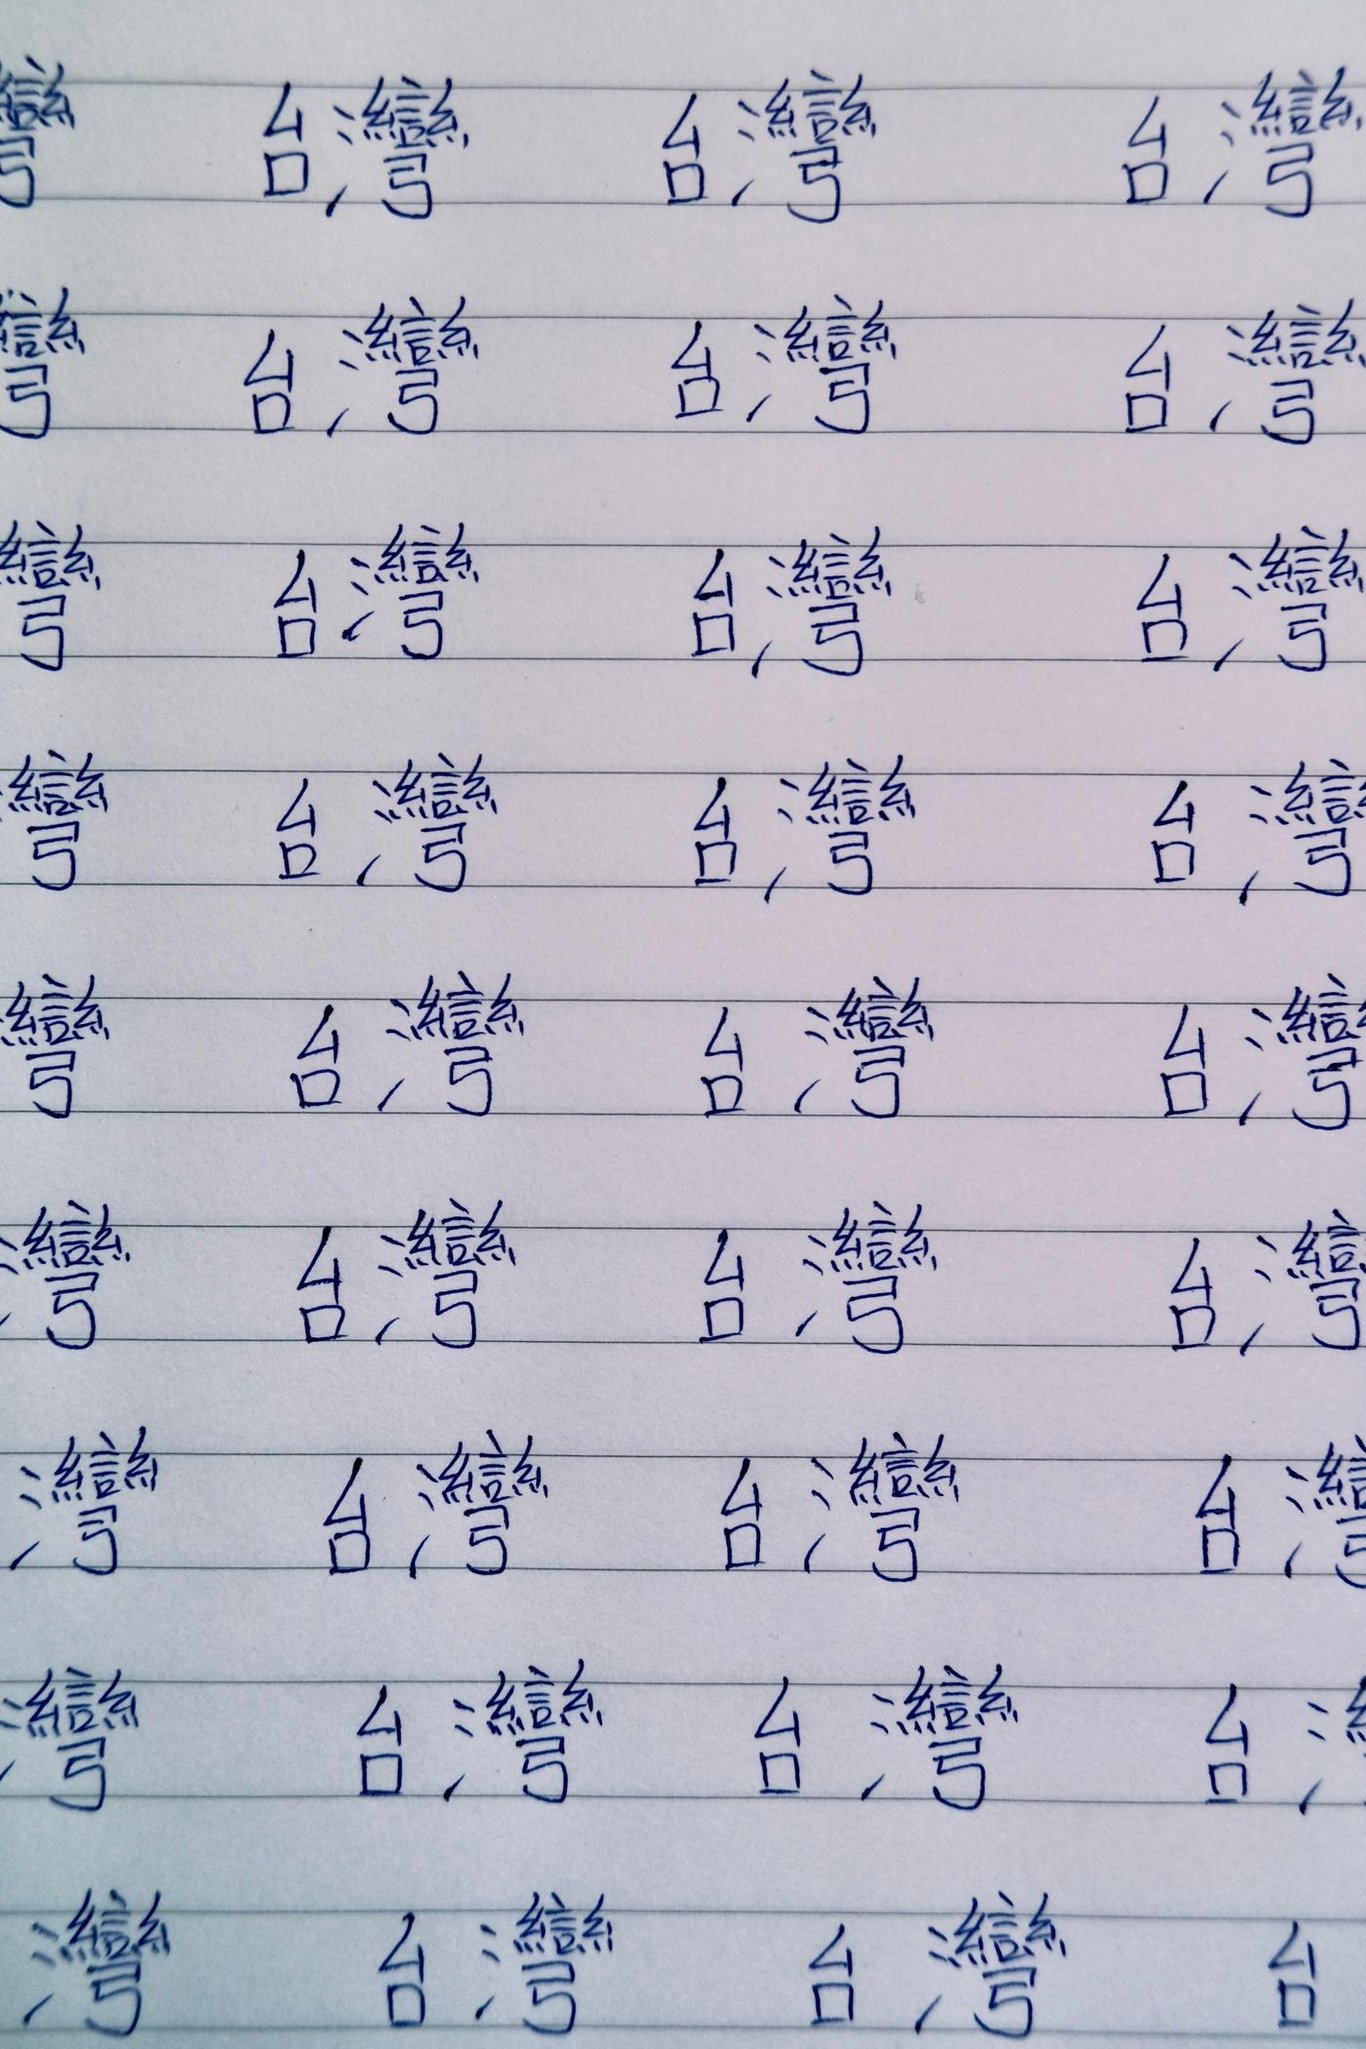 灣 台灣 台灣 台灣
灣 台灣 台灣 台灣
灣 台灣 台灣 台灣
灣 台灣 台灣 台灣
灣 台灣 台灣 台灣
灣 台灣 台灣 台灣
灣 台灣 台灣 台灣
灣 台灣 台灣 台
灣 台灣 台灣 台